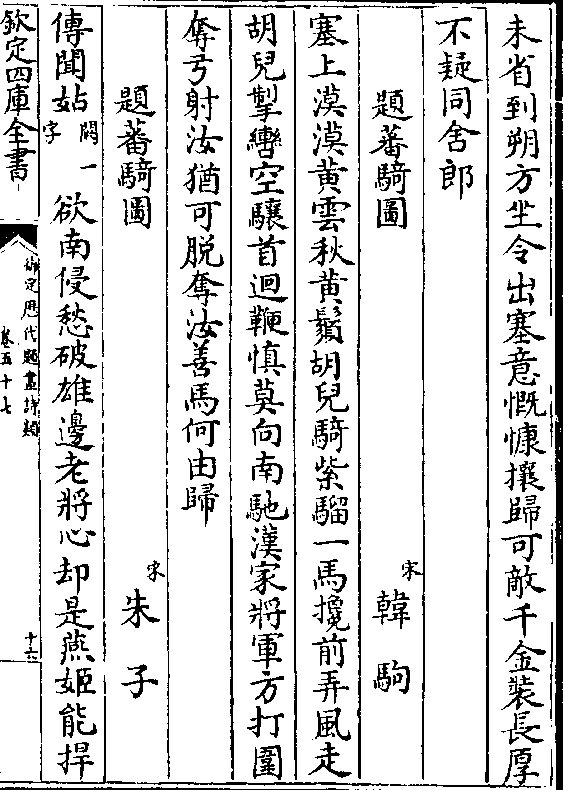 未省到朔方坐令出塞意慨慷攘歸可敵千金裝長厚
不疑同舍郎
題蕃騎圖　宋韓駒
塞上漠漠黃雲秋黃鬚胡兒騎紫騮一馬攙前弄風走
胡兒掣轡空驤首迴鞭慎莫向南馳漢家將軍方打圍
奪弓射汝猶可脫奪汝善馬何由歸
題蕃騎圖　宋朱子
傳聞姑闕一字欲南侵愁破雄邊老將心却是燕姬能捍
欽定四庫全書
御定歷代題畫詩類
卷五十七
十六